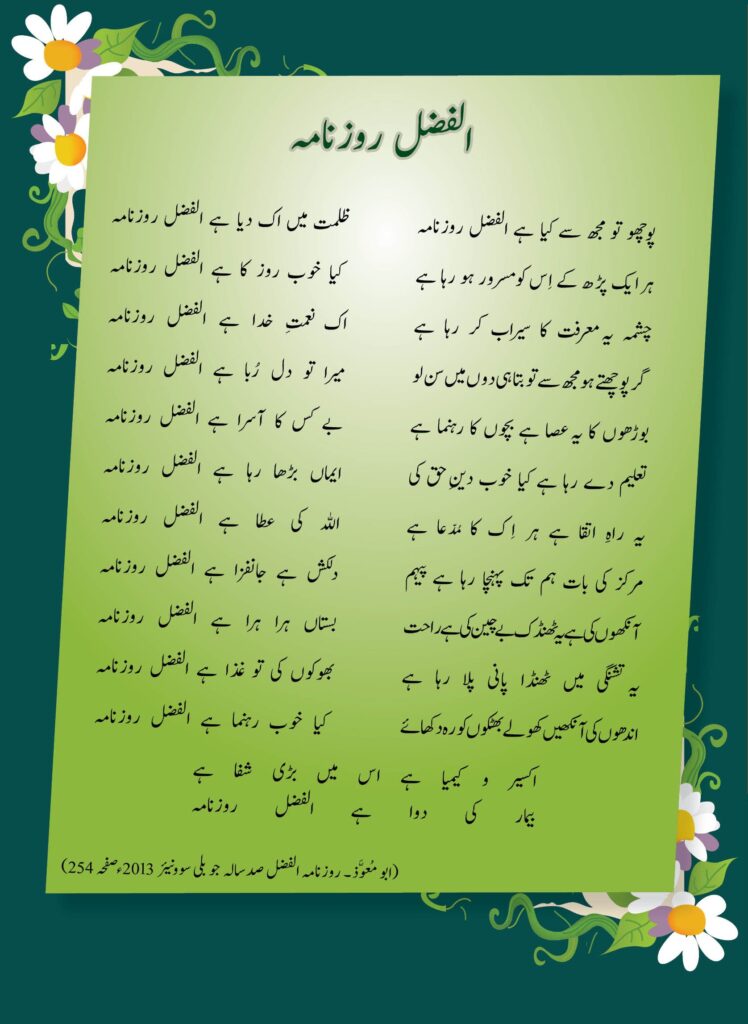 الفضل روزنامہ
پوچھو تو مجھ سے کیا ہے الفضل روزنامہ ظلمت میں اک دیا ہے الفضل روزنامہ
ہر ایک پڑھ کے اِس کو مسرور ہو رہا ہے کیا خوب روز کا ہے الفضل روزنامہ
چشمہ یہ معرفت کا سیراب کر رہا ہے اک نعمتِ خدا ہے الفضل روزنامہ
گر پوچھتے ہو مجھ سے تو بتا ہی دوں میں سن لو میرا تو دل رُبا ہے الفضل روزنامہ
بوڑھوں کا یہ عصا ہے بچوں کا رہنما ہے بے کس کا آسرا ہے الفضل روزنامہ
تعلیم دے رہا ہے کیا خوب دینِ حق کی ایماں بڑھا رہا ہے الفضل روزنامہ
یہ راہِ اتقا ہے ہر اِک کا مُدّعا ہے اللہ کی عطا ہے الفضل روزنامہ
مرکز کی بات ہم تک پہنچا رہا ہے پیہم دلکش ہے جانفزا ہے الفضل روزنامہ
آنکھوں کی ہے یہ ٹھنڈک بے چین کی ہے راحت بستاں ہرا ہرا ہے الفضل روزنامہ
یہ تشنگی میں ٹھنڈا پانی پلا رہا ہے بھوکوں کی تو غذا ہے الفضل روزنامہ
اندھوں کی آنکھیں کھولے بھٹکوں کو رہ دکھائے کیا خوب رہنما ہے الفضل روزنامہ
اکسیر و کیمیا ہے اس میں بڑی شفا ہے
بیمار کی دوا ہے الفضل روزنامہ
(ابو مُعوَّذ۔ روزنامہ الفضل صد سالہ جوبلی سووینئر 2013ء صفحہ 254)